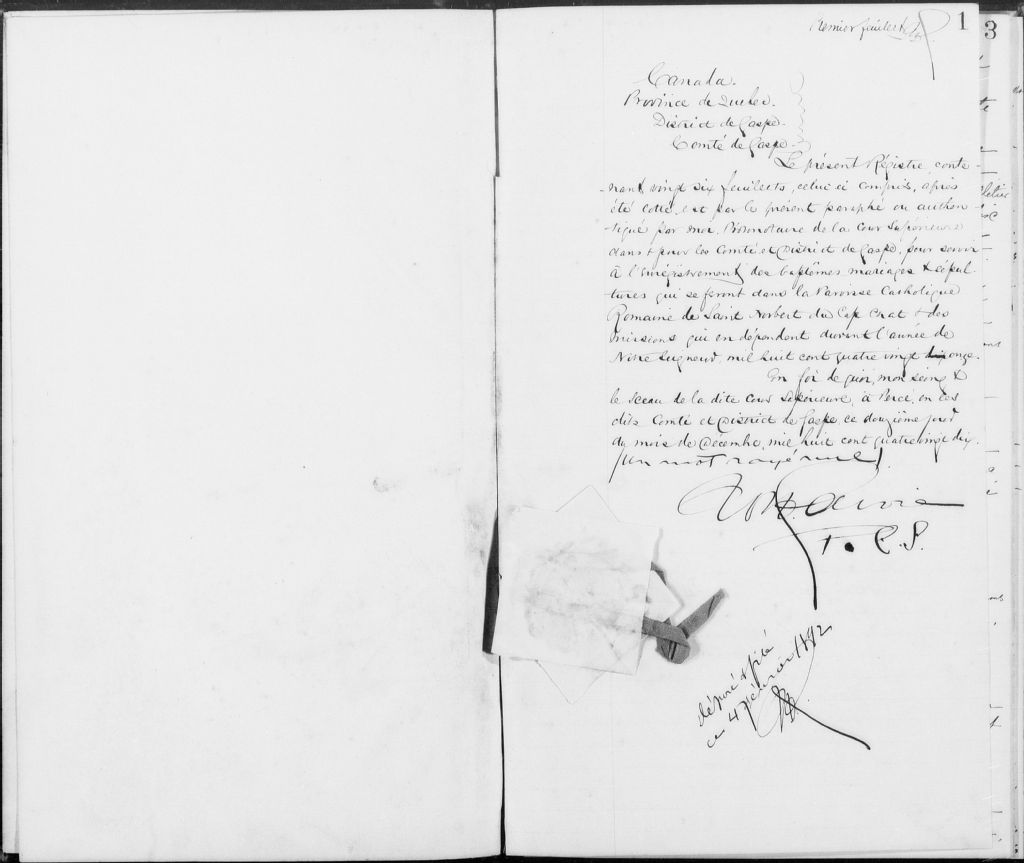 Premier feuillet
1
3
Canada.
Province de Quebec.
District de Gaspé.
Comté de Gaspé.
Le présent Régistre, conte-
-nant vingt six feuillets, celui ci compris, après
été cotté, est par le présent paraphé ou authen-
-tiqué par moi, Protonotaire de la Cour Supérieure
dans & pour les Comté et District de Gaspé, pour servir
à l'Enrégistrement des baptêmes mariages & sépul-
-tures qui se feront dans la Paroisse Catholique
Romaine de Saint Norbert du Cap Chat & des
missions qui en dépendent durant l'année de
Notre Seigneur, mil huit cent quatre vingt onze.
En foi de quoi, mon seing &
le sceau de la dite Cour Supérieure, à Percé, en ces
dits Comté et District de Gaspé ce douzième jour
du mois de Decembre, mil huit cent quatre vingt dix.
/Un mot rayé nul/.
P. C. S.
déposé & filé
ce 4 février 1892